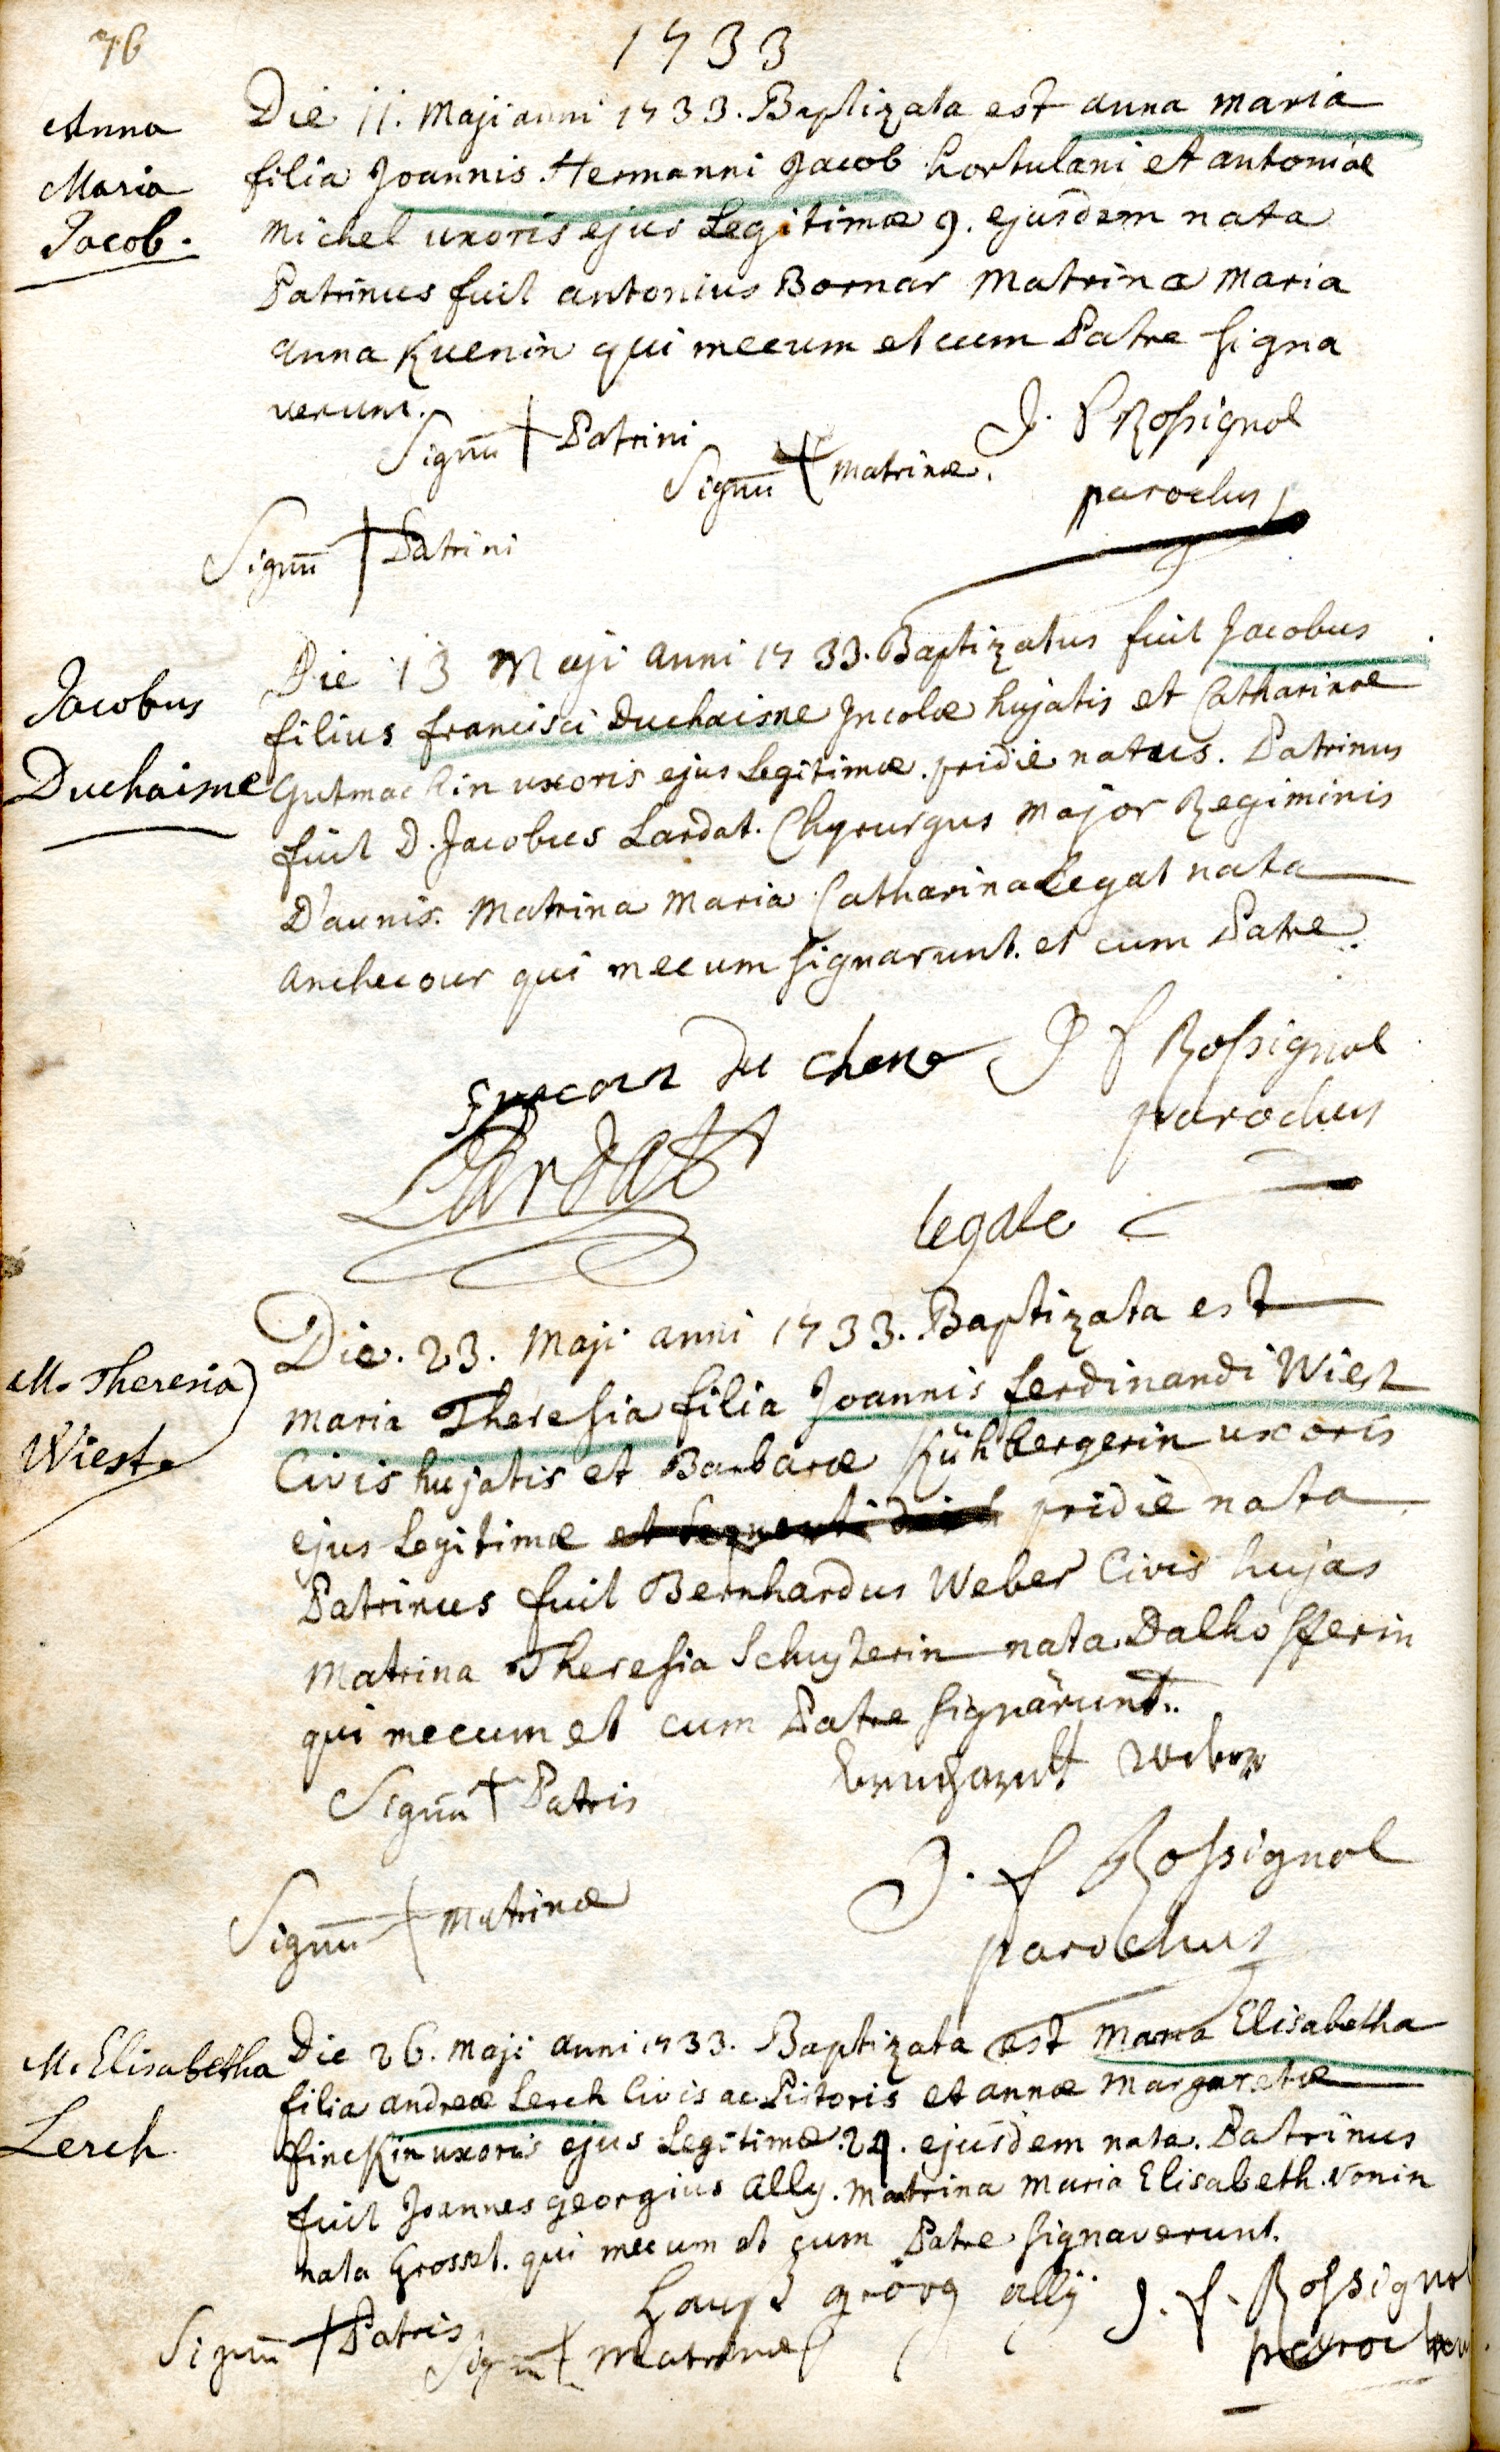 76
1733
Anna
Maria
Jacob.
Die 11. Maji anni 1733. Baptizata est anna maria
filia Joannis Hermanni Jacob hortulani et antoniae
Michel uxoris ejus Legitimae 9. ejusdem nata
Patrinus fuit antonius Bornar Matrina Maria
anna Kuenin qui mecum et cum Patre signa
verunt.
Signū + Patrini
Signū + matrinae.
J. f Rossignol
parochus
Signū + Patrini
Jacobus
Duchaisne
Die 13 Maji anni 1733. Baptizatus fuit Jacobus
filius francisci Duchaisne Incolae hujatis et Catharinae
Gutmackin uxoris ejus Legitimae. pridie natus. Patrinus
fuit D. Jacobus Lardat. Chyrurgus Major Regiminis
D'aunis. Matrina Maria Catharina Legat nata
anchecour qui mecum signarunt. et cum Patre.
du chene
J f Rossignol
parochus
Lardatt
legate
M. Theresia
Wiest
Die. 23. Maji anni 1733. Baptizata est
maria Theresia filia Joannis ferdinandi Wiest
Civis hujatis et Barbarae Kühbergerin uxoris
ejus Legitimae et sequenti pridie nata
Patrinus fuit Bernhardus Weber Civis hujas
Matrina Theresia Schusterin nata Dalhofferin
qui mecum et cum Patre signarunt..
Signū + Patris
Weber
J. f Rossignol
parochus
Signū + matrinae
M. Elisabetha
Lerch
Die 26. Maji anni 1733. Baptizata est maria Elisabetha
filia andreae Lerch Civis ac Pistoris et annae Margaretae
finckin uxoris ejus Legitimae. 24. ejusdem nata. Patrinus
fuit Joannes georgius ally. Matrina Maria Elisabeth. Vonin
nata Grosset. qui mecum et cum Patre signaverunt.
Signū + Patris
Signū + Matrinae
Hanß görg allÿ
J. f. Rossignol
parochus